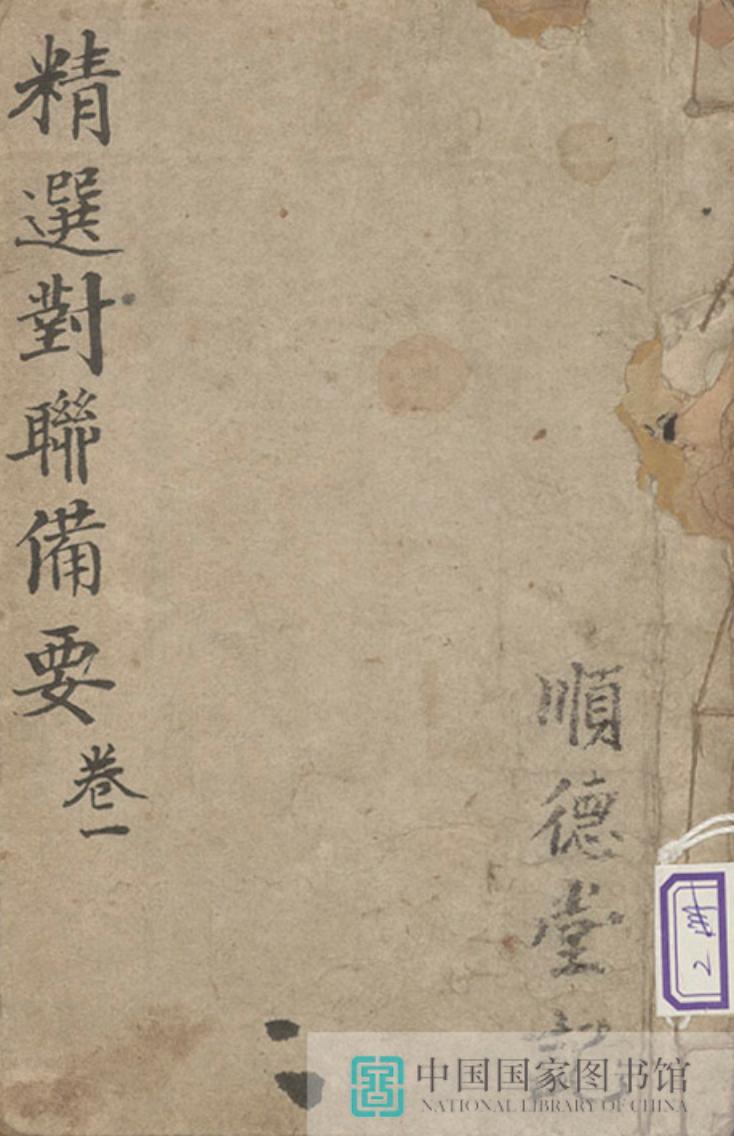 精選對聯備要
卷一
順德堂記
2册
中国国家图书馆
NATIONAL LIBRARY OF CHINA